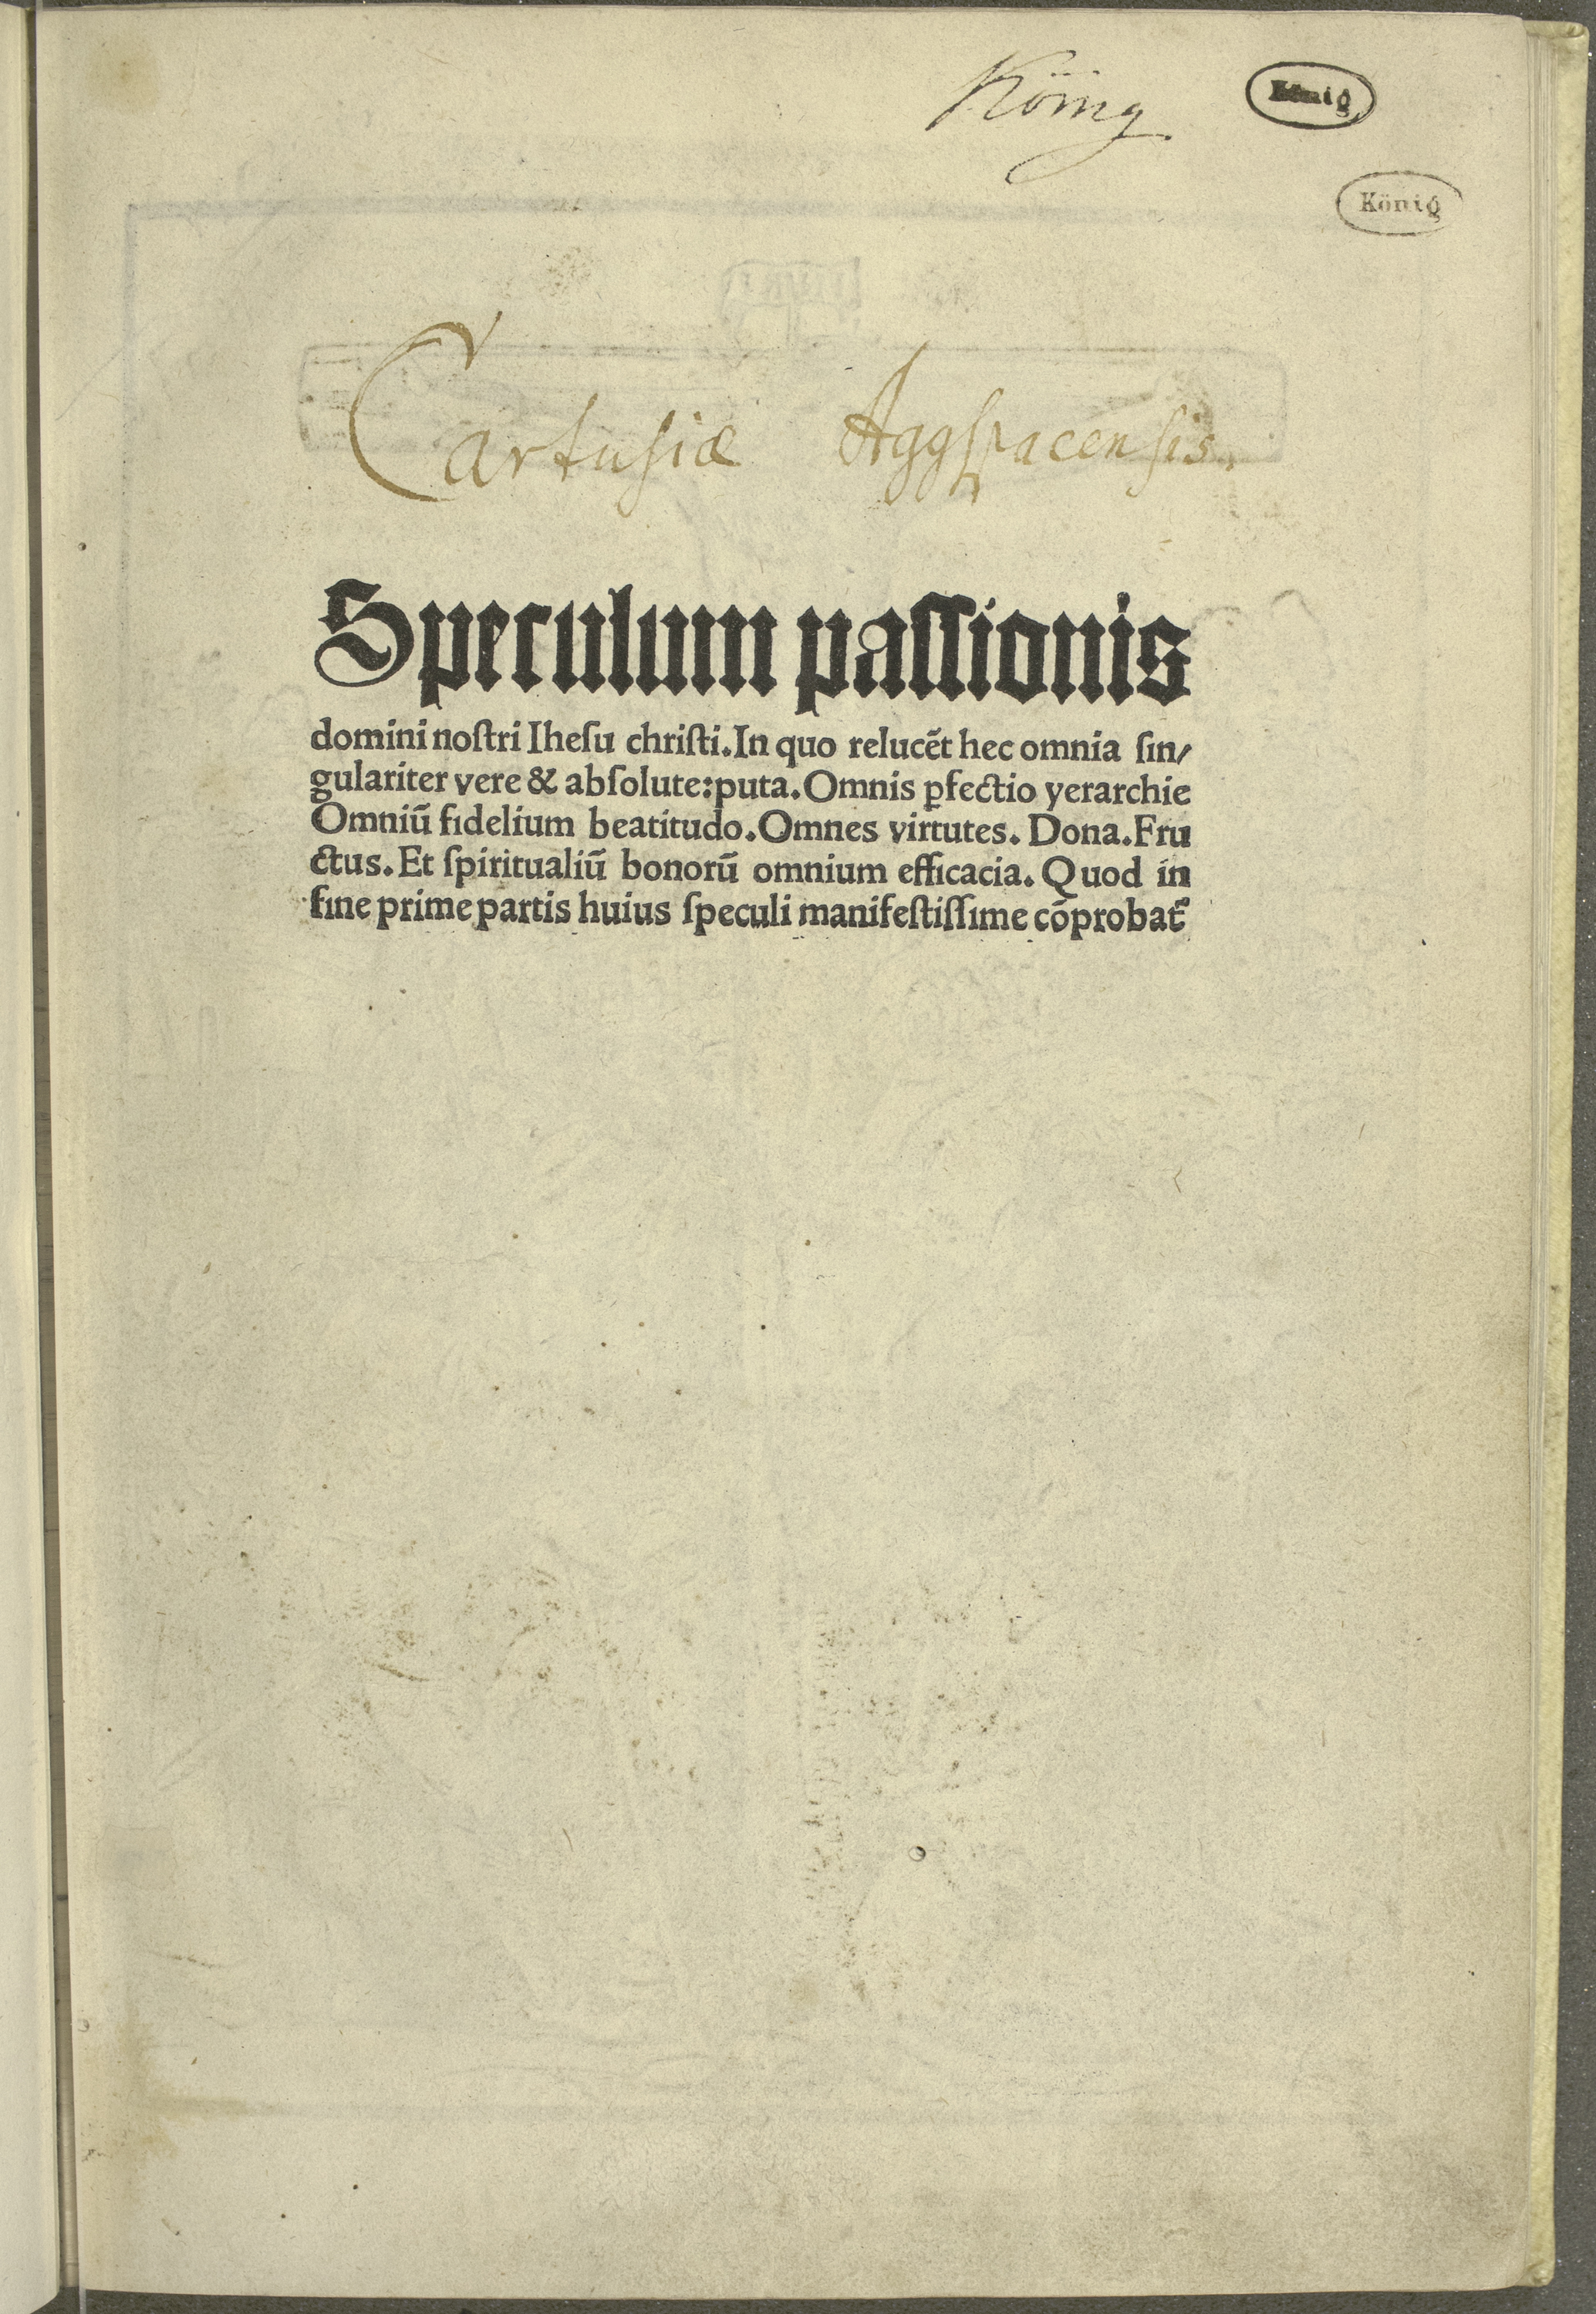 König
König
König
Cartusiæ Aggspacensis.
Speculum passionis
domini noſtri Iheſu chriſti. In quo relucẽt hec omnia ſin/
gulariter vere & abſolute: puta. Omnis ꝑfectio yerarchie
Omniũ fidelium beatitudo. Omnes virtutes. Dona. Fru
ctus. Et ſpiritualiũ bonorũ omnium efficacia. Quod in
fine prime partis huius ſpeculi manifeſtiſſime cõprobat᷑